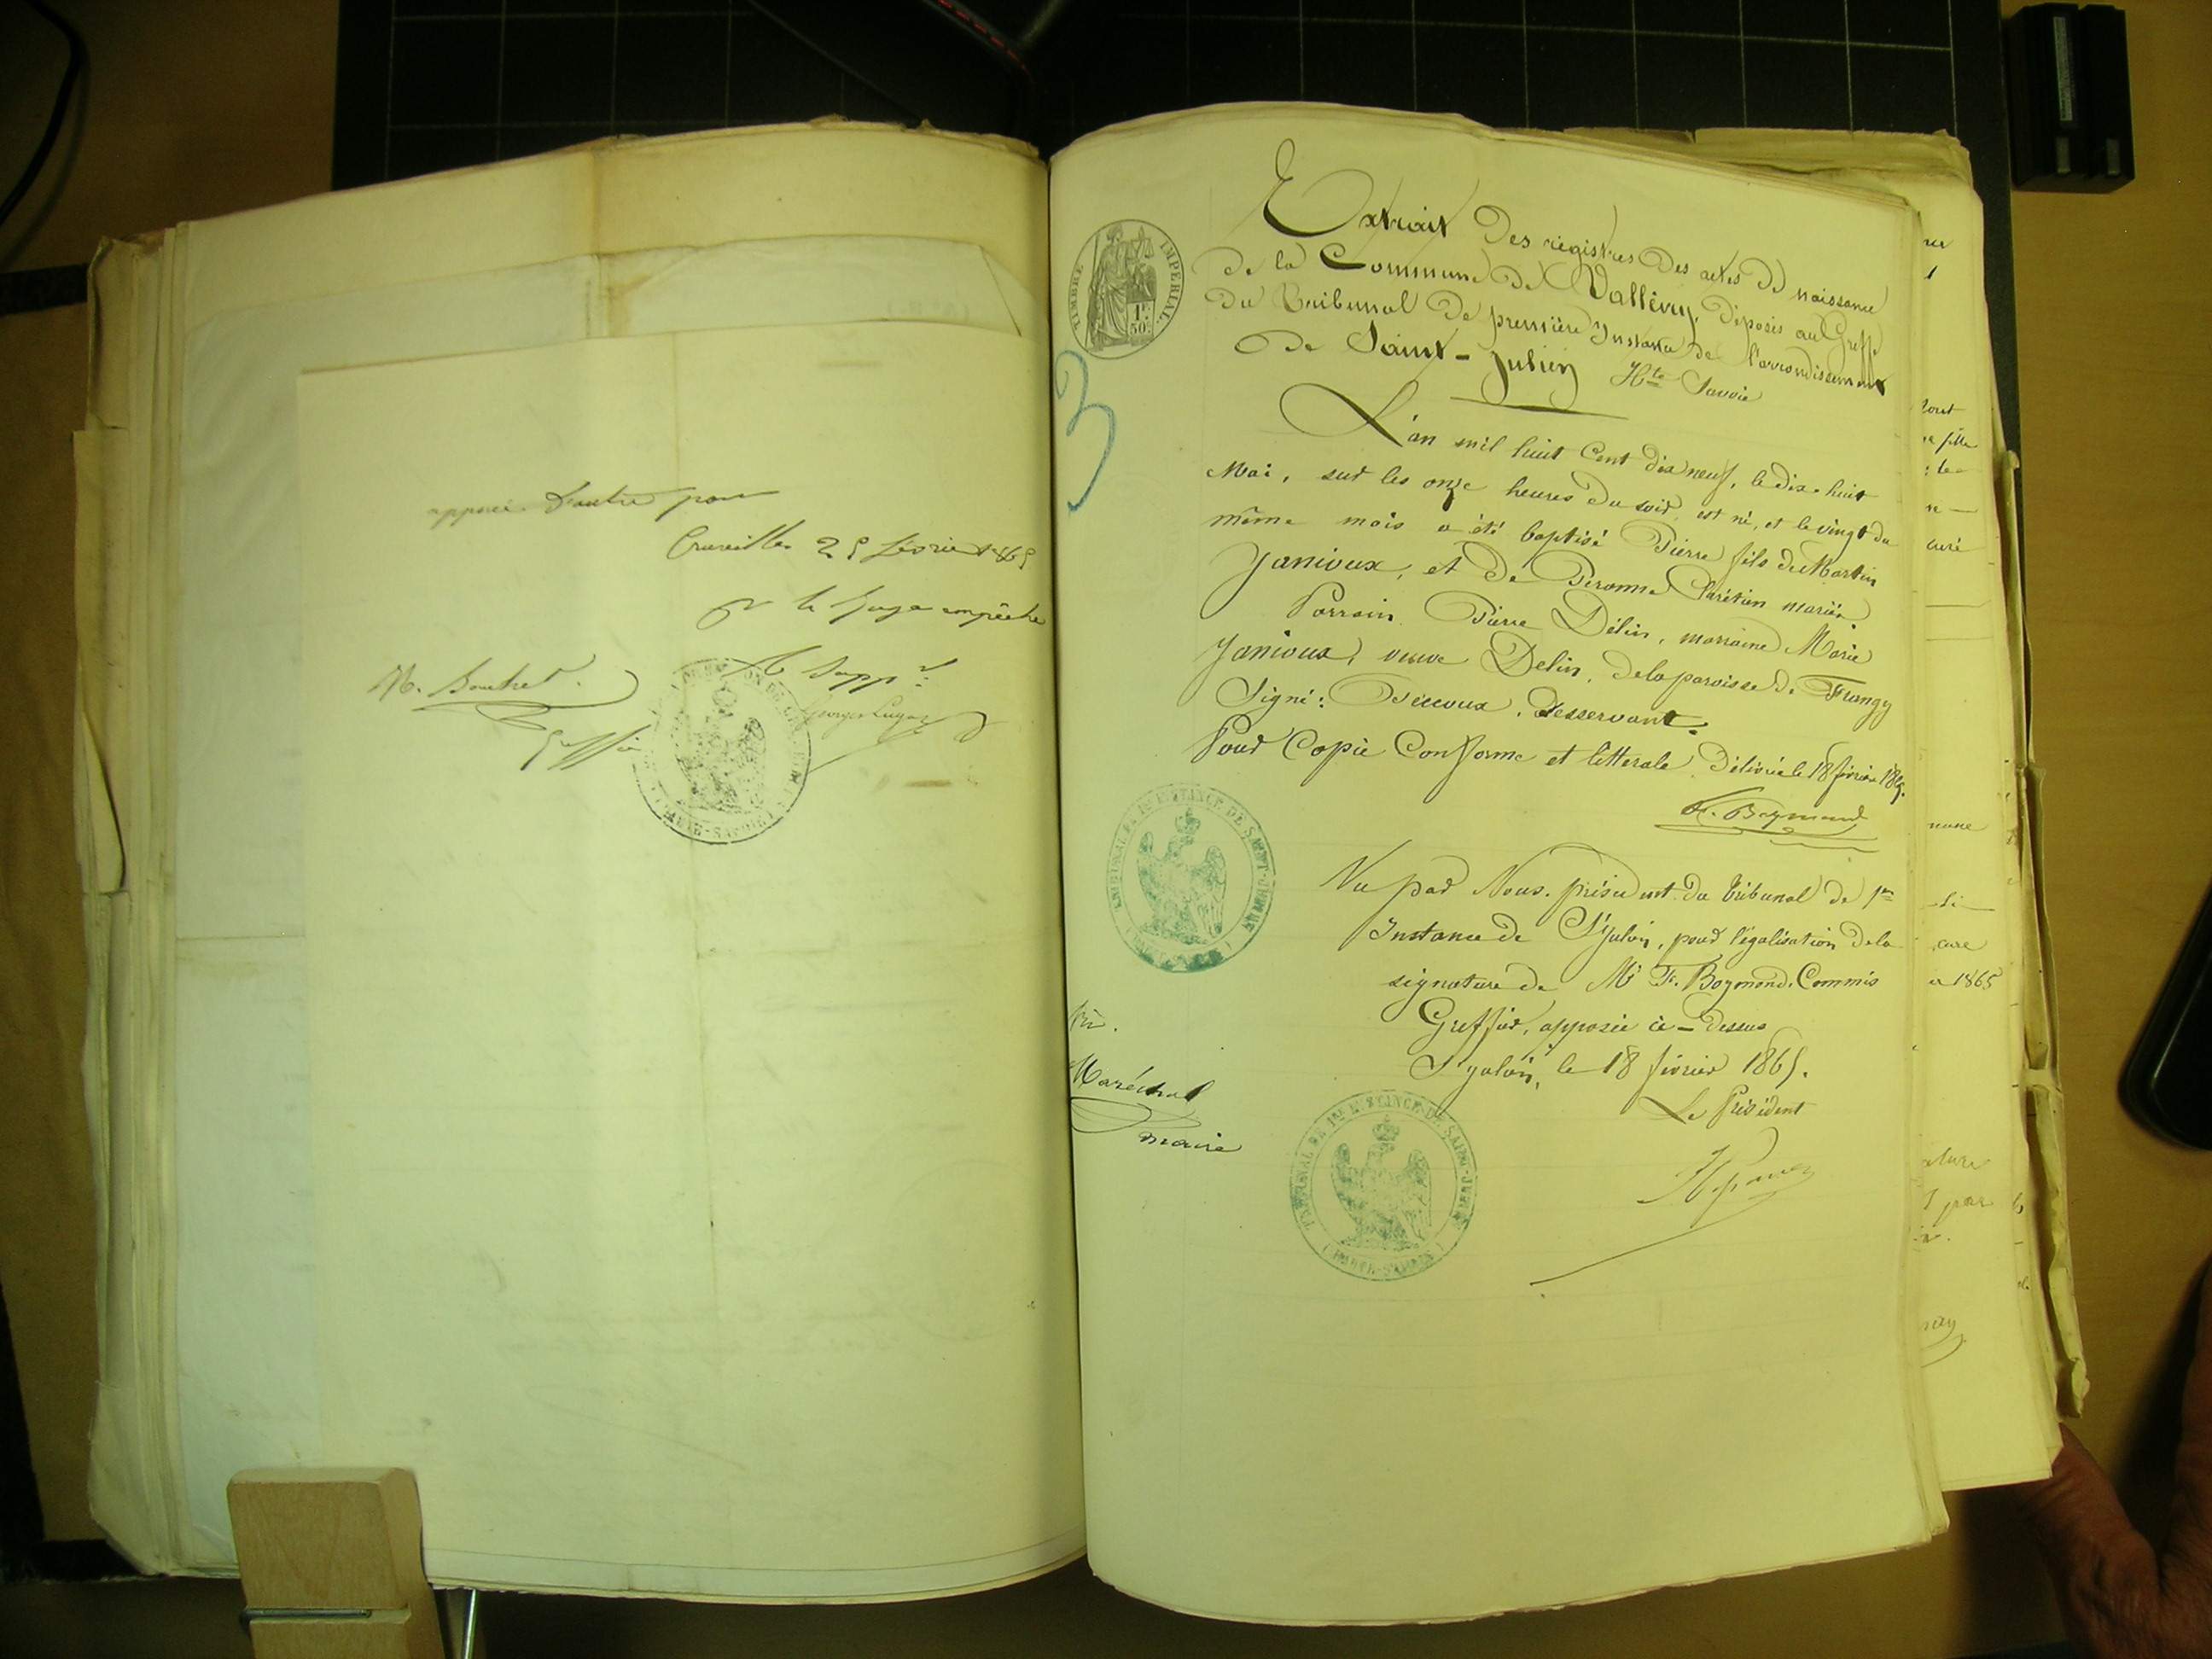 apposée d'autre part
Cruseilles 25 février 1865
Pr le Juge empêché
le suppt
M. Bouchet
Greffier
TIMBRE IMPERIAL
1F
50C
3
Extrait des registres des actes de naissance
de la Commune de Vallèiry, déposés au Greffe
du Tribunal de première Instance de l'arrondissement
de Saint-Julien Hte Savoie
L'an mil huit cent dix neuf, le dix-huit
Mai, sur les onze heures du soir, est né, et le vingt du
même mois a été baptisé Pierre fils de Martin
Janivoux, et de Peronne Chrétien mariés
Parrain Pierre Délin, marraine Marie
Janivoux, veuve Delin, de la paroisse de Frangy
Signé: Descoux, desservant.
Pour Copie Conforme et litterale Délivrée le 18 février 1865.
F. Boymond
TRIBUNAL DE 1RE INSTANCE DE SAINT-JULIEN
(HAUTE-SAVOIE)
Vu par Nous, président du tribunal de 1re
Instance de St Julien, pour légalisation de la
signature de Mr F. Boymond, Commis
Greffier, apposée ci-dessus
St Julien, le 18 février 1865.
Le Président
TRIBUNAL DE 1RE INSTANCE DE SAINT-JULIEN
(HAUTE-SAVOIE)
Maréchal
maire
curé
1865
par